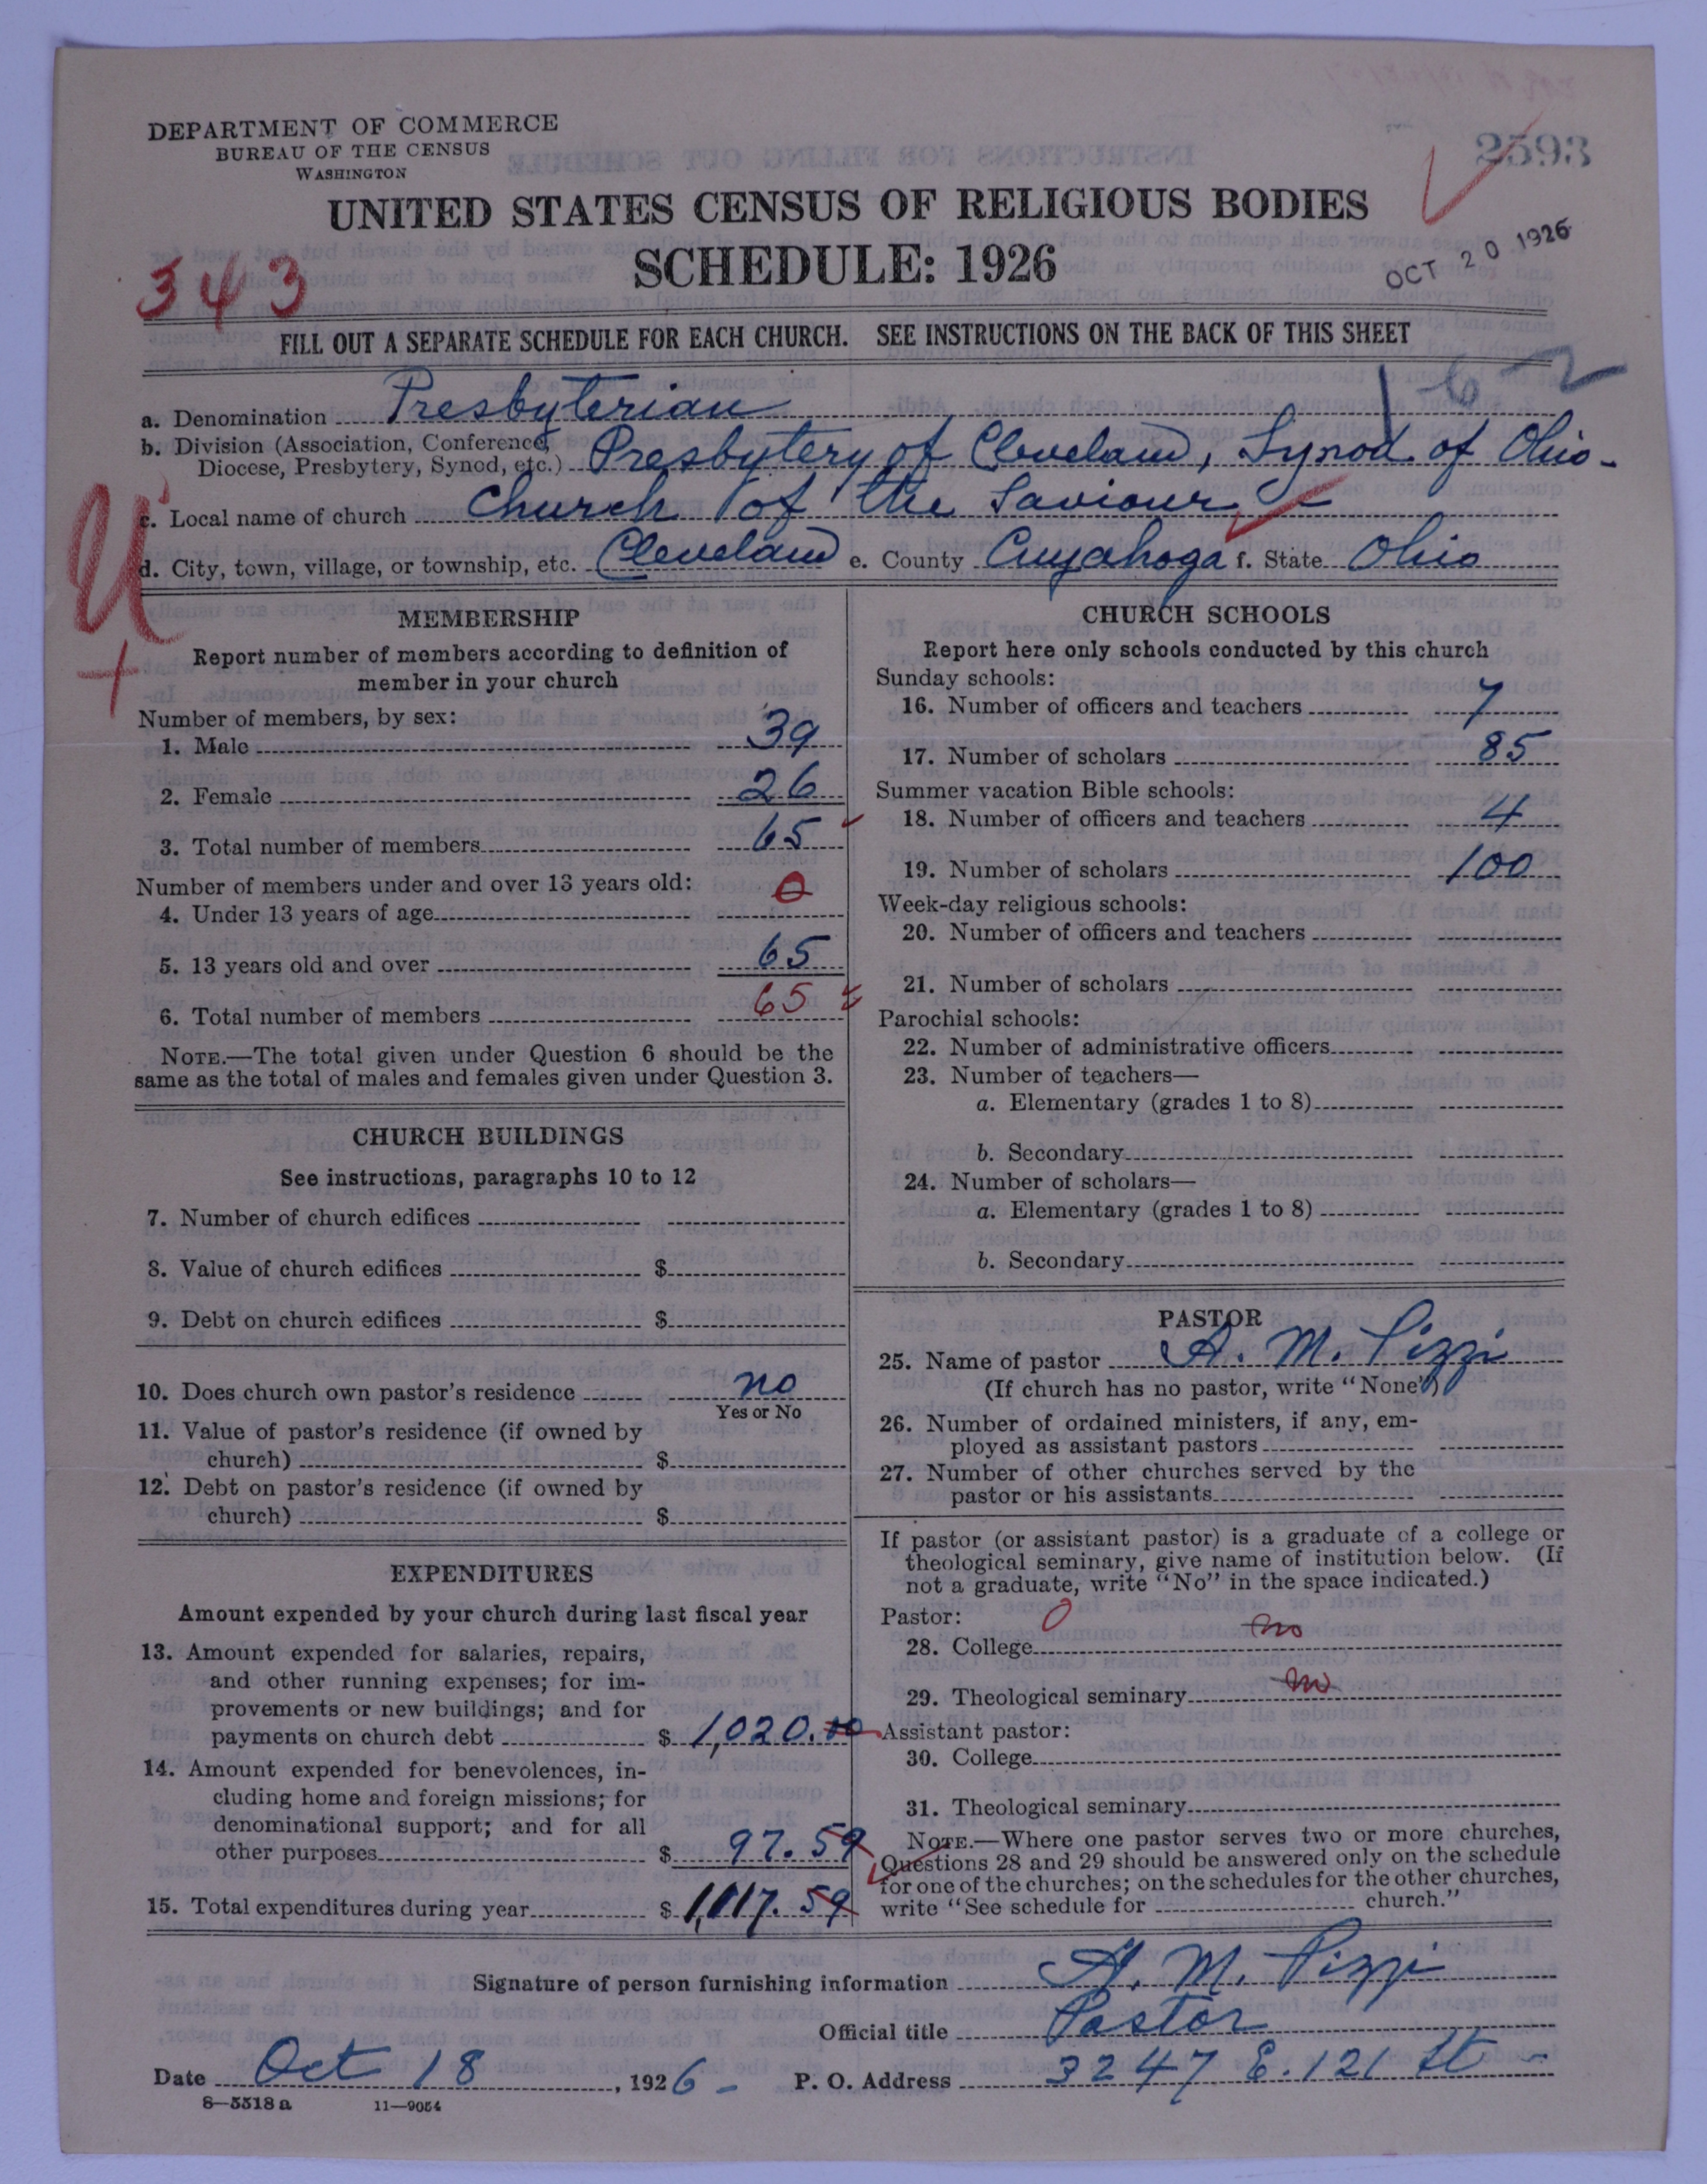 DEPARTMENT OF COMMERCE
BUREAU OF THE CENSUS
WASHINGTON
2593
UNITED STATES CENSUS OF RELIGIOUS BODIES
SCHEDULE: 1926
OCT 20 1926
343
FILL OUT A SEPARATE SCHEDULE FOR EACH CHURCH. SEE INSTRUCTIONS ON THE BACK OF THIS SHEET
a. Denomination Presbyterian
b. Division (Association, Conference,
Diocese, Presbytery, Synod, etc.) Presbytery of Cleveland, Synod of Ohio
c. Local name of church Church of the Saviour
d. City, town, village, or township, etc. Cleveland e. County Cuyahoga f. State Ohio
U
MEMBERSHIP
Report number of members according to definition of
member in your church
Number of members, by sex:
1. Male 39
2. Female 26
3. Total number of members 65
Number of members under and over 13 years old:
4. Under 13 years of age 0
5. 13 years old and over 65
6. Total number of members 65
NOTE.—The total given under Question 6 should be the
same as the total of males and females given under Question 3.
CHURCH BUILDINGS
See instructions, paragraphs 10 to 12
7. Number of church edifices
8. Value of church edifices $
9. Debt on church edifices $
10. Does church own pastor's residence no
Yes or No
11. Value of pastor's residence (if owned by
church) $
12. Debt on pastor's residence (if owned by
church) $
EXPENDITURES
Amount expended by your church during last fiscal year
13. Amount expended for salaries, repairs,
and other running expenses; for im-
provements or new buildings; and for
payments on church debt $ 1,020.00
14. Amount expended for benevolences, in-
cluding home and foreign missions; for
denominational support; and for all
other purposes $ 97.59
15. Total expenditures during year $ 1,117.59
CHURCH SCHOOLS
Report here only schools conducted by this church
Sunday schools:
16. Number of officers and teachers 7
17. Number of scholars 85
Summer vacation Bible schools:
18. Number of officers and teachers 4
19. Number of scholars 100
Week-day religious schools:
20. Number of officers and teachers
21. Number of scholars
Parochial schools:
22. Number of administrative officers
23. Number of teachers—
a. Elementary (grades 1 to 8)
b. Secondary
24. Number of scholars—
a. Elementary (grades 1 to 8)
b. Secondary
PASTOR
25. Name of pastor A. M. Pizzi
(If church has no pastor, write "None")
26. Number of ordained ministers, if any, em-
ployed as assistant pastors
27. Number of other churches served by the
pastor or his assistants
If pastor (or assistant pastor) is a graduate of a college or
theological seminary, give name of institution below. (If
not a graduate, write "No" in the space indicated.)
Pastor: 0
28. College no
29. Theological seminary no
Assistant pastor:
30. College
31. Theological seminary
NOTE.—Where one pastor serves two or more churches,
Questions 28 and 29 should be answered only on the schedule
for one of the churches; on the schedules for the other churches,
write "See schedule for church."
Signature of person furnishing information A. M. Pizzi
Official title Pastor
Date Oct 18, 1926 P. O. Address 3247 E. 121 St
8—5518a 11—9054